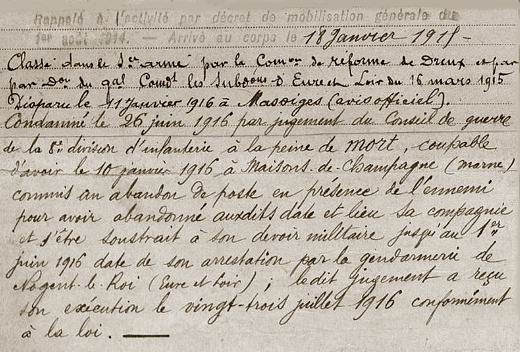 Rappelé à l'activité par décret de mobilisation générale du
1er août 1914. — Arrivé au corps le 18 Janvier 1915 -
Classé dans le Sce armé par la Comon de réforme de Dreux et par
par Don du gal Comdt les Subdons d'Eure et Loir du 16 mars 1915
Disparu le 11 Janvier 1916 à Massiges (avis officiel).
Condamné le 26 juin 1916 par jugement du Conseil de guerre
de la 8e division d'infanterie à la peine de mort, coupable
d'avoir le 10 janvier 1916 à Maisons-de-Champagne (marne)
commis un abandon de poste en présence de l'ennemi
pour avoir abandonné auxdits date et lieu sa compagnie
et s'être soustrait à son devoir militaire jusqu'au 1er
juin 1916 date de son arrestation par la gendarmerie de
Nogent-le-Roi (Eure et Loir) ; ledit jugement a reçu
son exécution le vingt-trois juillet 1916 conformément
à la loi. —